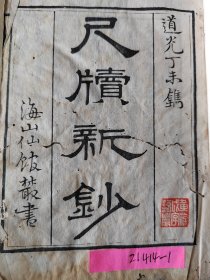 道光丁未鐫
尺牘新鈔
海山仙館叢書
21414-1